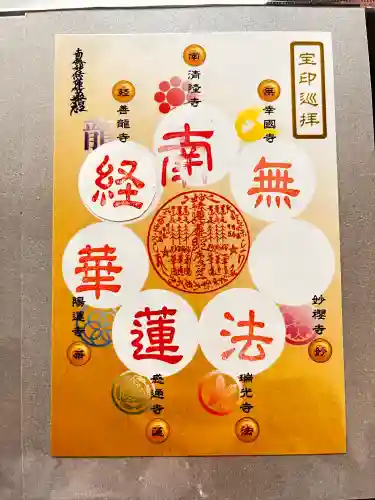 宝印巡拝
南
清陸寺
南
無
幸國寺
無
妙櫻寺
妙
法
瑞光寺
法
蓮
盛通寺
蓮
華
陽運寺
華
経
善龍寺
経
龍